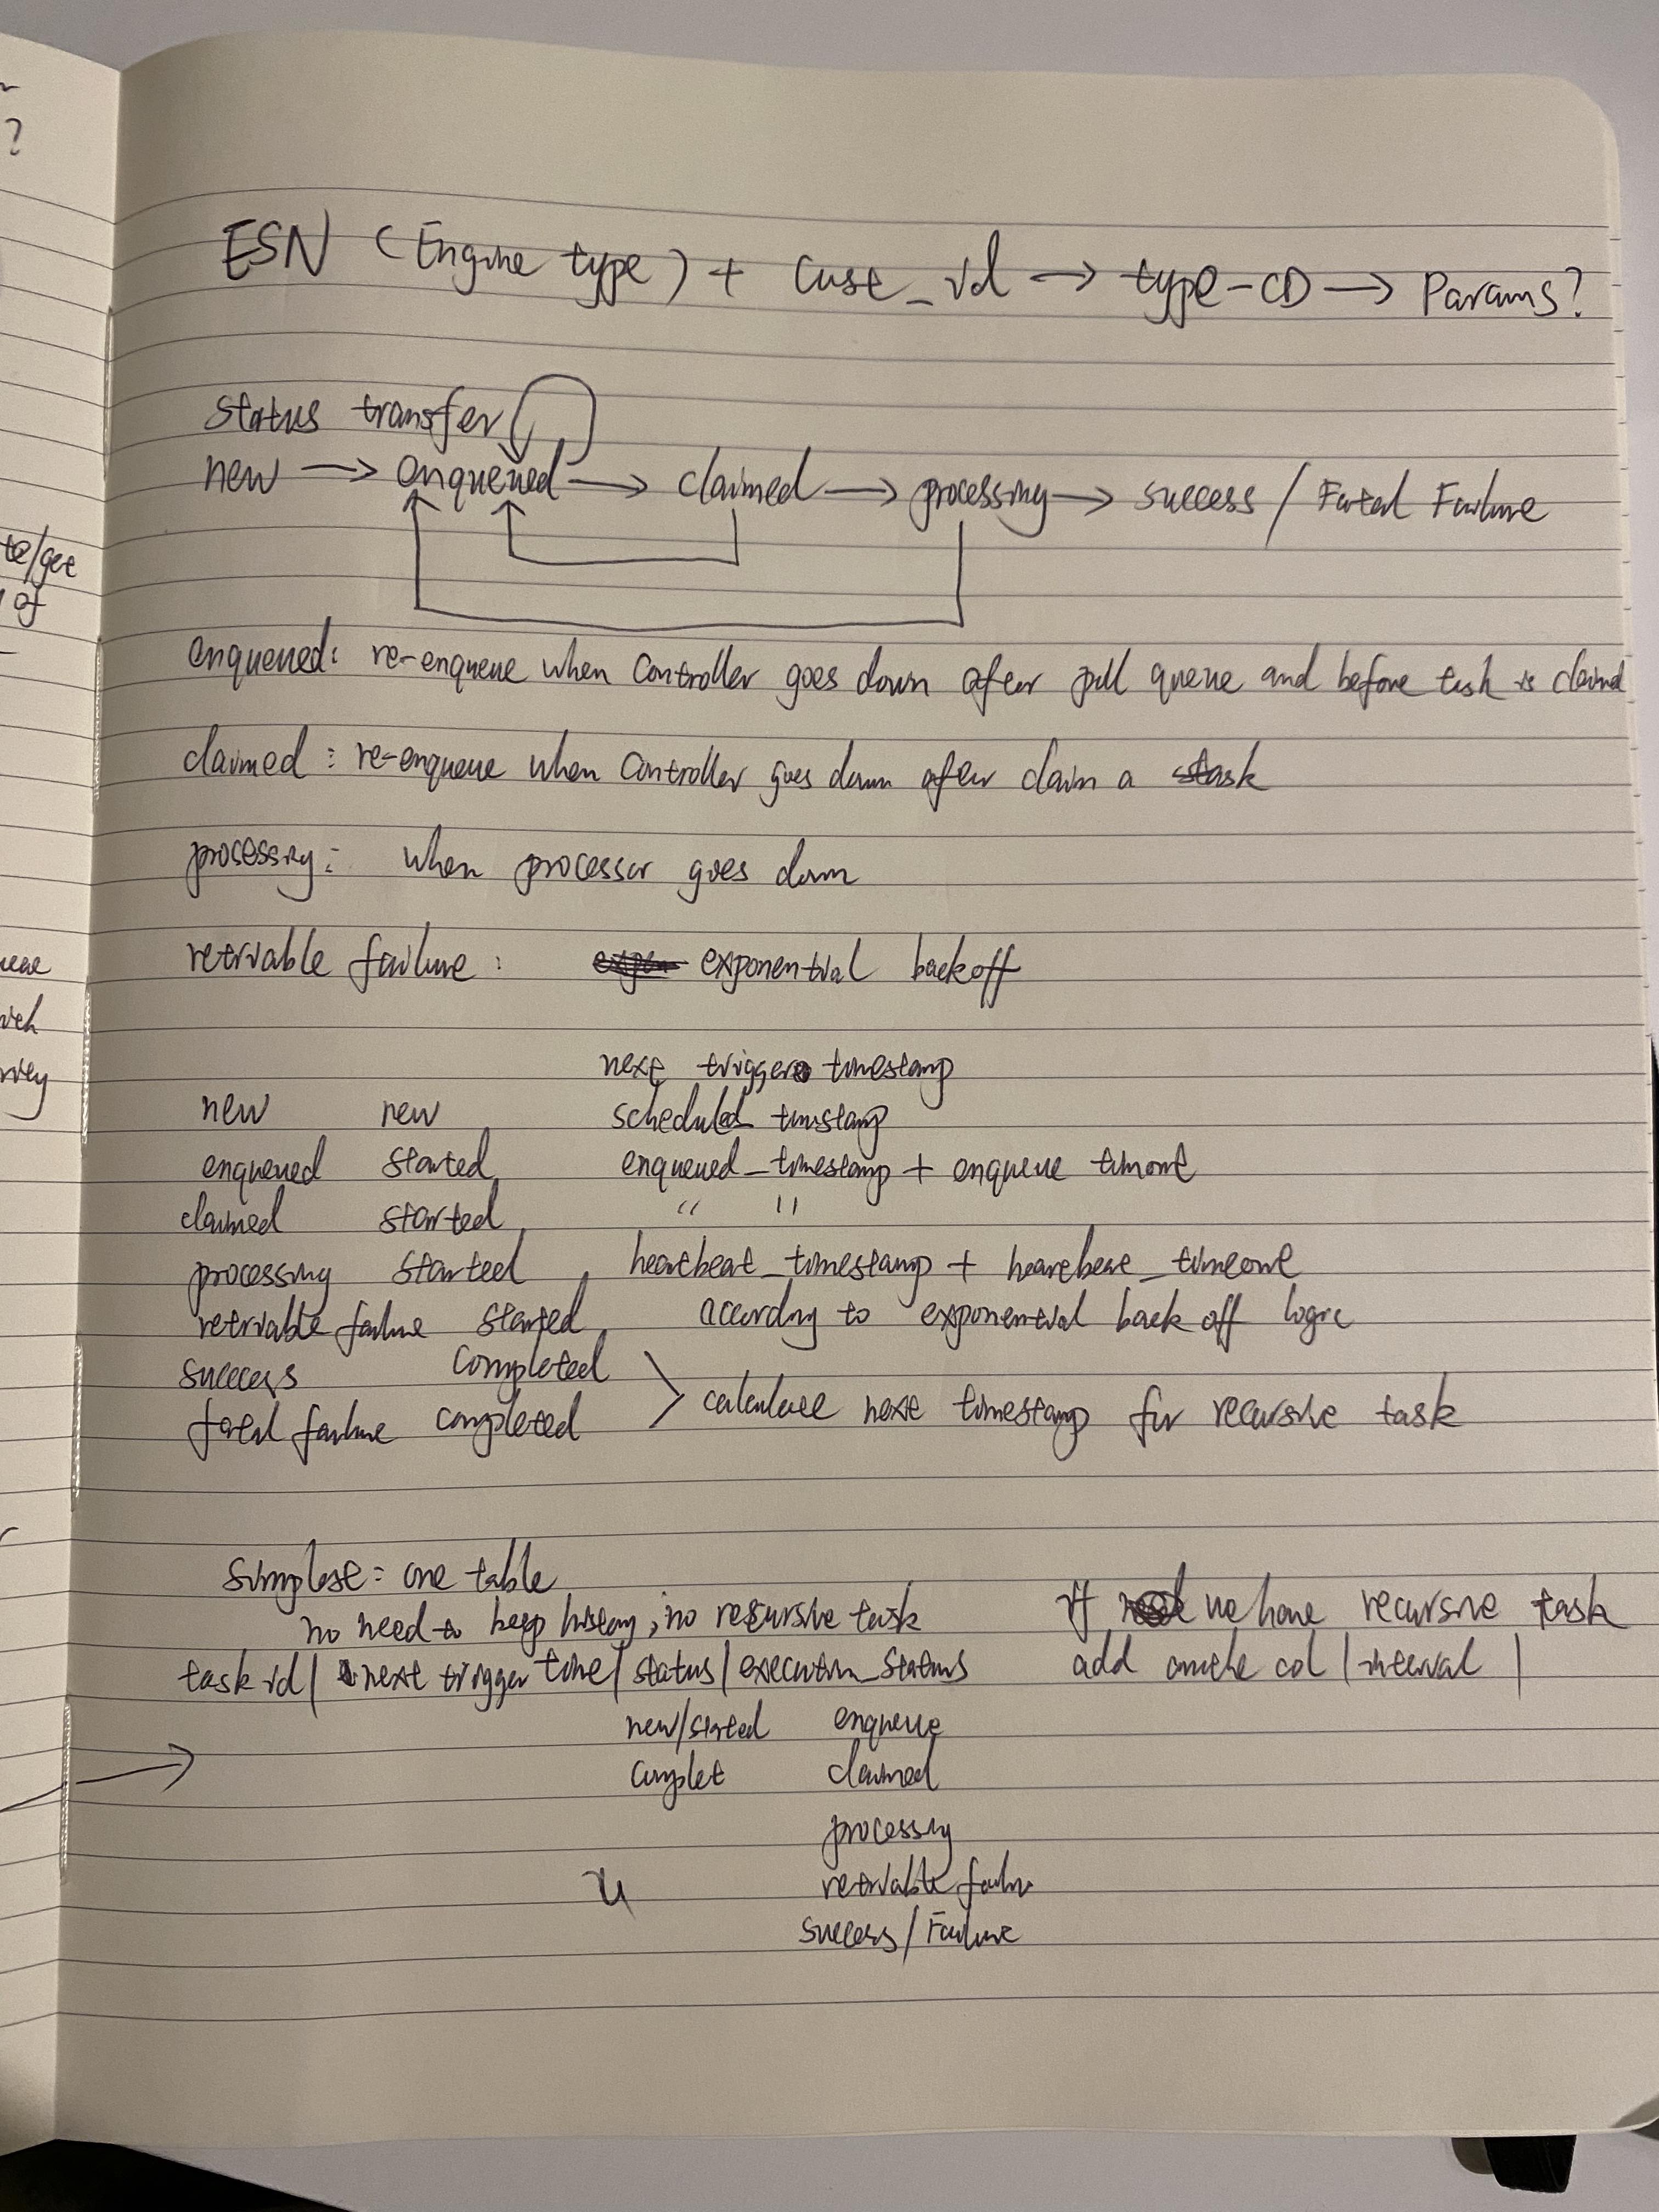 ?
te/get
of
ESN (Engine type) + Cust_id → type-CD → Params?
Status transfer
new → enqueued → claimed → processing → success / Fatal Failure
enqueued: re-enqueue when Controller goes down after pull queue and before task is claimed
claimed: re-enqueue when Controller goes down after claim a task
processing: when processor goes down
retriable failure: exponential backoff
next trigger timestamp
new new scheduled timestamp
enqueued started enqueued_timestamp + enqueue timeout
claimed started " "
processing started heartbeat_timestamp + heartbeat_timeout
retriable failure started according to exponential back off logic
success completed
fatal failure completed > calculate next timestamp for recursive task
Simplest: one table
no need to keep history, no recursive task
if we have recursive task
task id | next trigger time | status | execution_status
add another col | interval |
new/started enqueue
complet claimed
processing
retriable failure
success / Failure